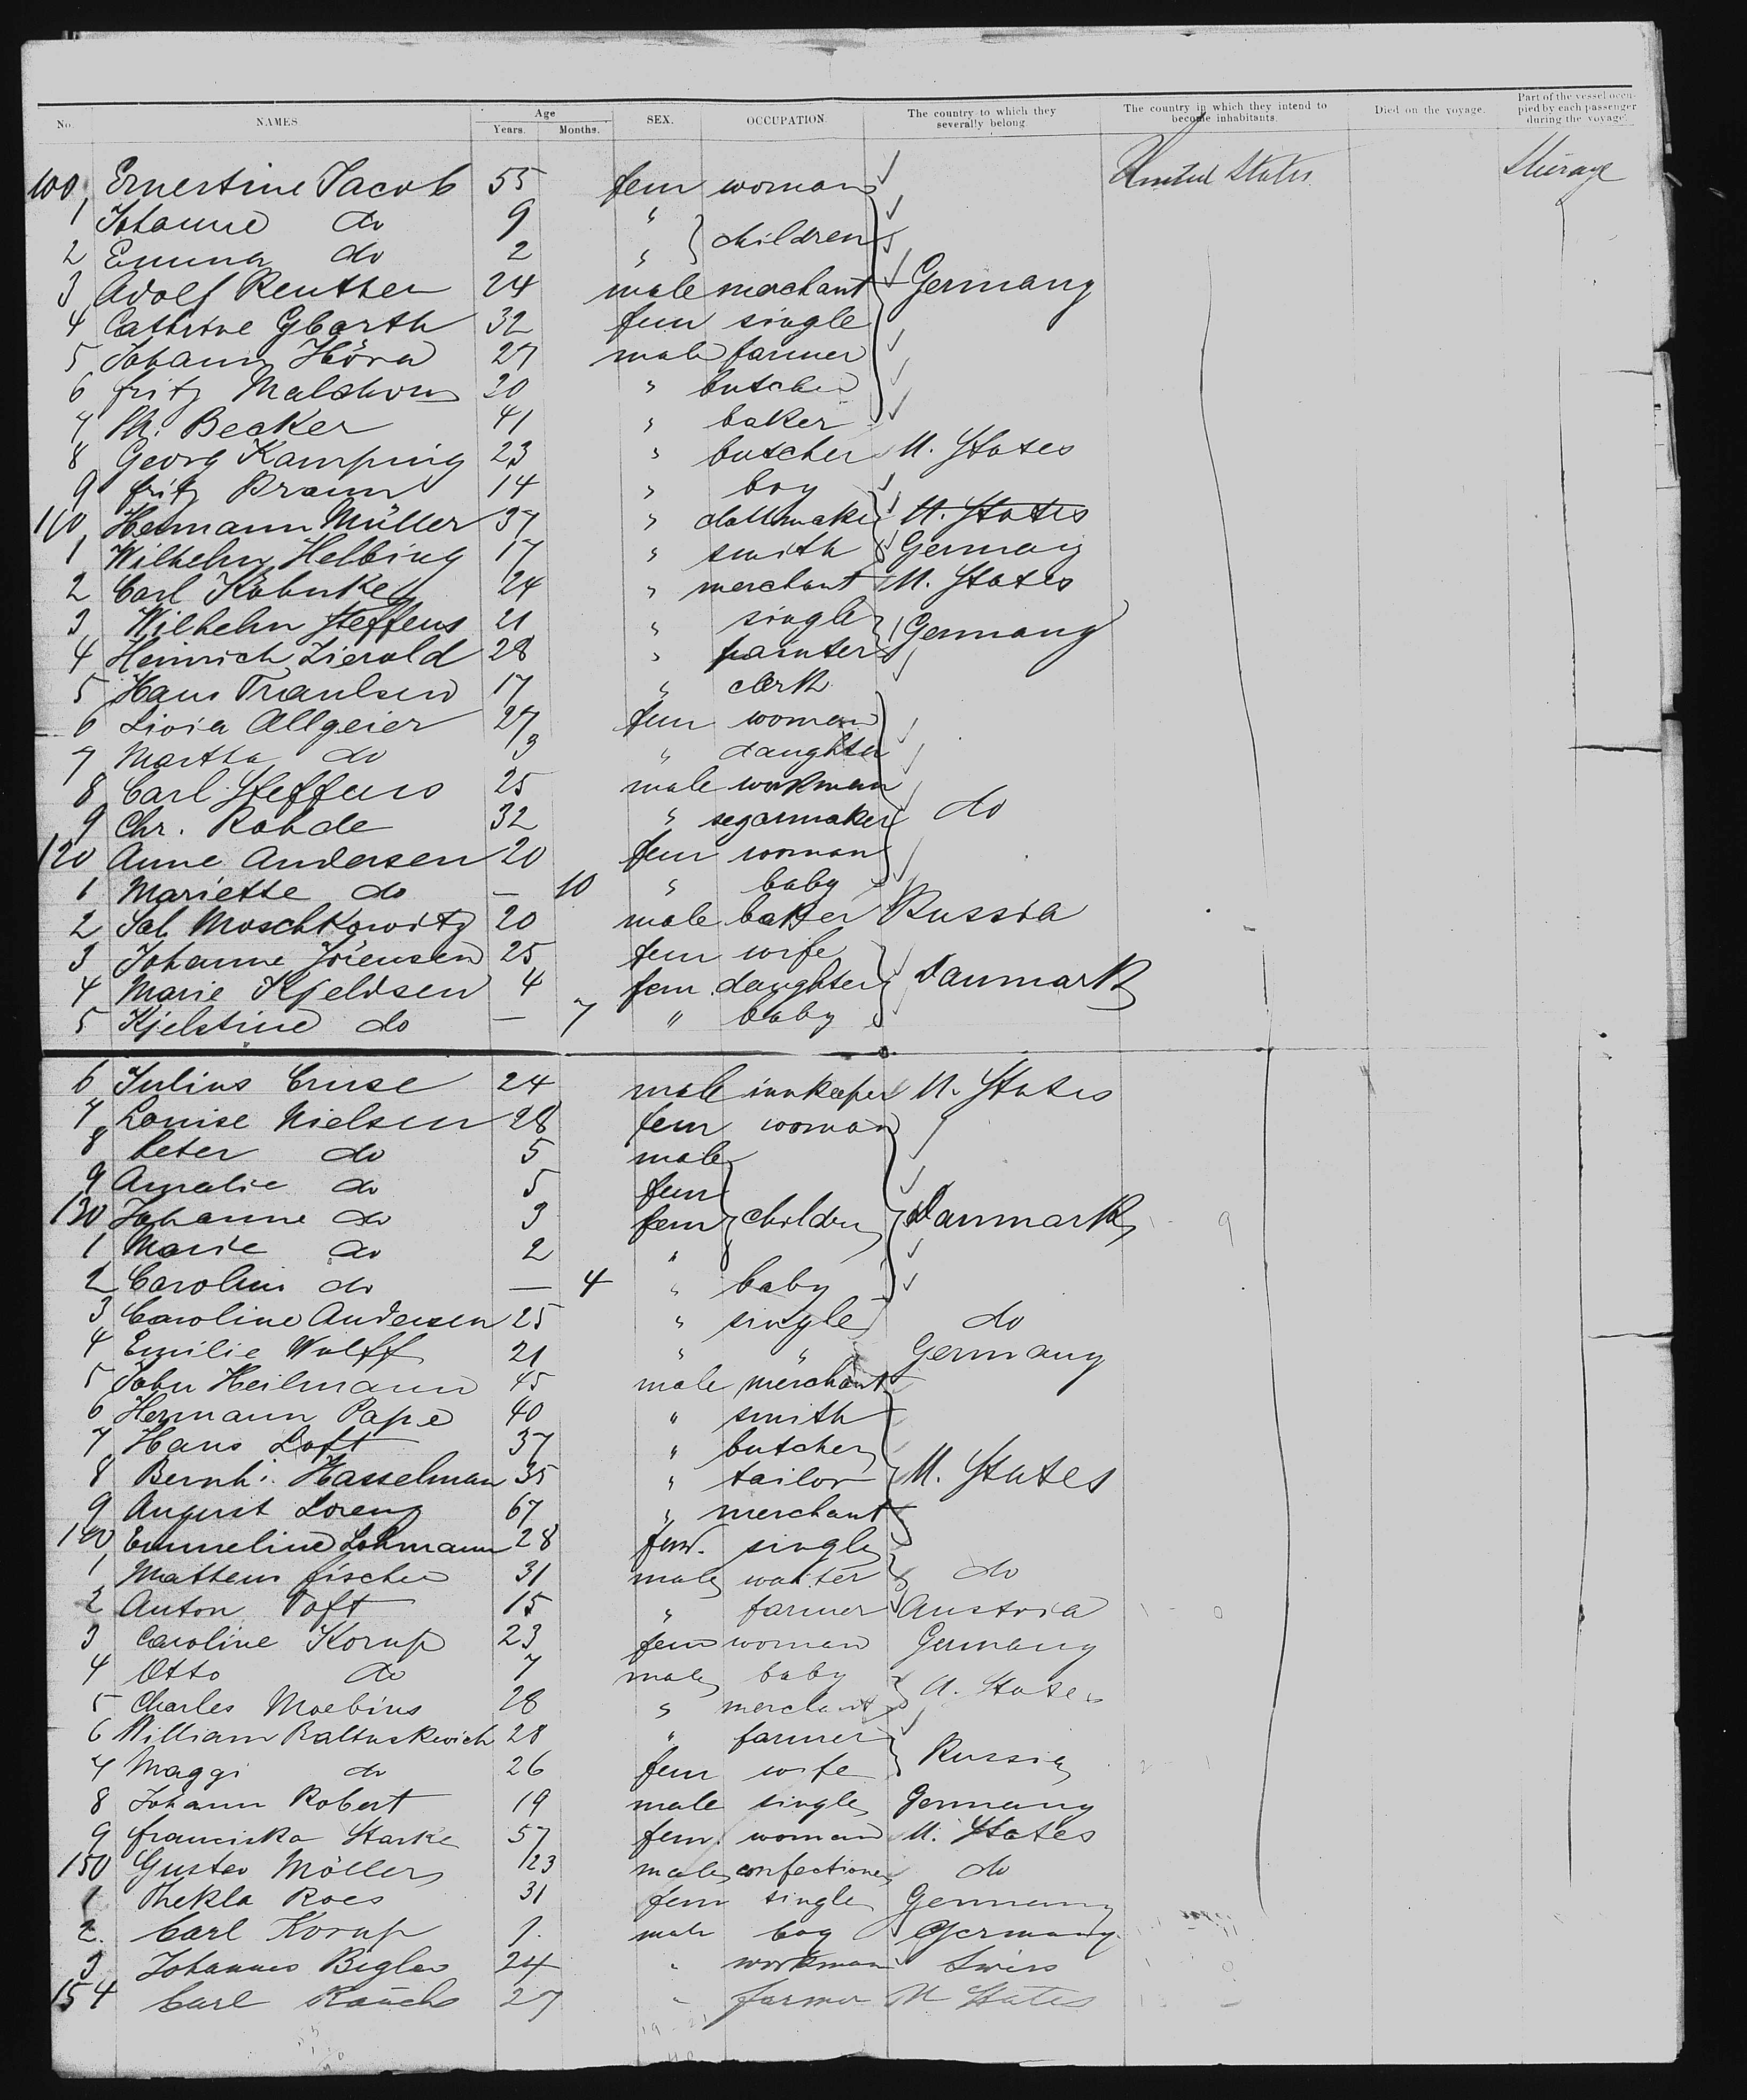 No. NAMES Age Years. Months. SEX. OCCUPATION The country to which they severally belong. The country in which they intend to become inhabitants. Died on the voyage. Part of the vessel occupied by each passenger during the voyage.
100 Ernestine Jacob 55 fem woman United States Steerage
1 Johanne do 9 " children
2 Emma do 2 "
3 Adolf Reuther 24 male merchant Germany
4 Cathrine Gbarth 32 fem single
5 Johann Hörn 27 male farmer
6 fritz Malshorn 20 " butcher
7 Ph. Becker 41 " baker
8 Georg Kamping 23 " butcher U. States
9 fritz Braun 14 " boy
110 Hermann Müller 37 " U. States
1 Wilhelm Helbing 17 " smith Germany
2 Carl Köhnke 24 " merchant U. States
3 Wilhelm Steffens 21 " single Germany
4 Heinrich Zierold 28 " painter
5 Hans Traulsen 17 " clerk
6 Livia Allgeier 27 fem woman
7 Martha do 3 " daughter
8 Carl Steffens 25 male workman
9 Chr. Rohde 32 " segarmaker do
120 Anne Andersen 20 fem woman
1 Mariette do — 10 " baby
2 Sal Moschkowitz 20 male baker Russia
3 Johanne Jörensen 25 fem wife
4 Marie Kjeldsen 4 fem. daughter Danmark
5 Kjelstine do — 7 " baby
6 Julius Cruse 24 male innkeeper U. States
7 Louise Nielsen 28 fem woman
8 Peter do 5 male
9 Amalie do 5 fem
130 Johanne do 3 fem childen Danmark
1 Marie do 2 "
2 Carolin do — 4 " baby
3 Caroline Andersen 25 " single do
4 Emilie Wulff 21 " " Germany
5 John Heilmann 45 male merchant
6 Hermann Pape 40 " smith
7 Hans Loft 37 " butcher
8 Bernh. Hasselman 35 " tailor U. States
9 August Lorenz 67 " merchant
140 Emmeline Lohmann 28 fem. single
1 Mattheus fischer 31 male waiter do
2 Anton Toft 15 " farmer Austria
3 Caroline Korup 23 fem woman Germany
4 Otto do 7 male baby
5 Charles Moebius 28 " merchant U. States
6 William Baltuskwich 28 " farmer
7 Maggi do 26 fem wife Russia
8 Johann Robert 19 male single Germany
9 franciska Starke 57 fem. woman U. States
150 Gustav Möllers 23 male confectioner do
1 Thekla Roes 31 fem single Germany
2. Carl Korup 9. male boy Germany
3 Johannes Bigler 24 " workman Swiss
154 Carl Rauch 27 " farmer U States